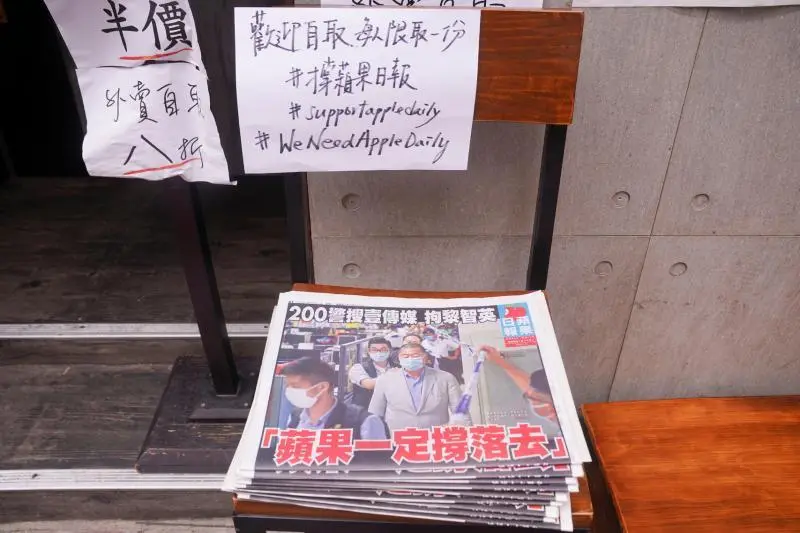 半價
外賣自取
八折
歡迎自取,每人限取一份
#撐蘋果日報
#supportappledaily
#WeNeedAppleDaily
200警搜壹傳媒 拘黎智英
蘋果日報
「蘋果一定撐落去」